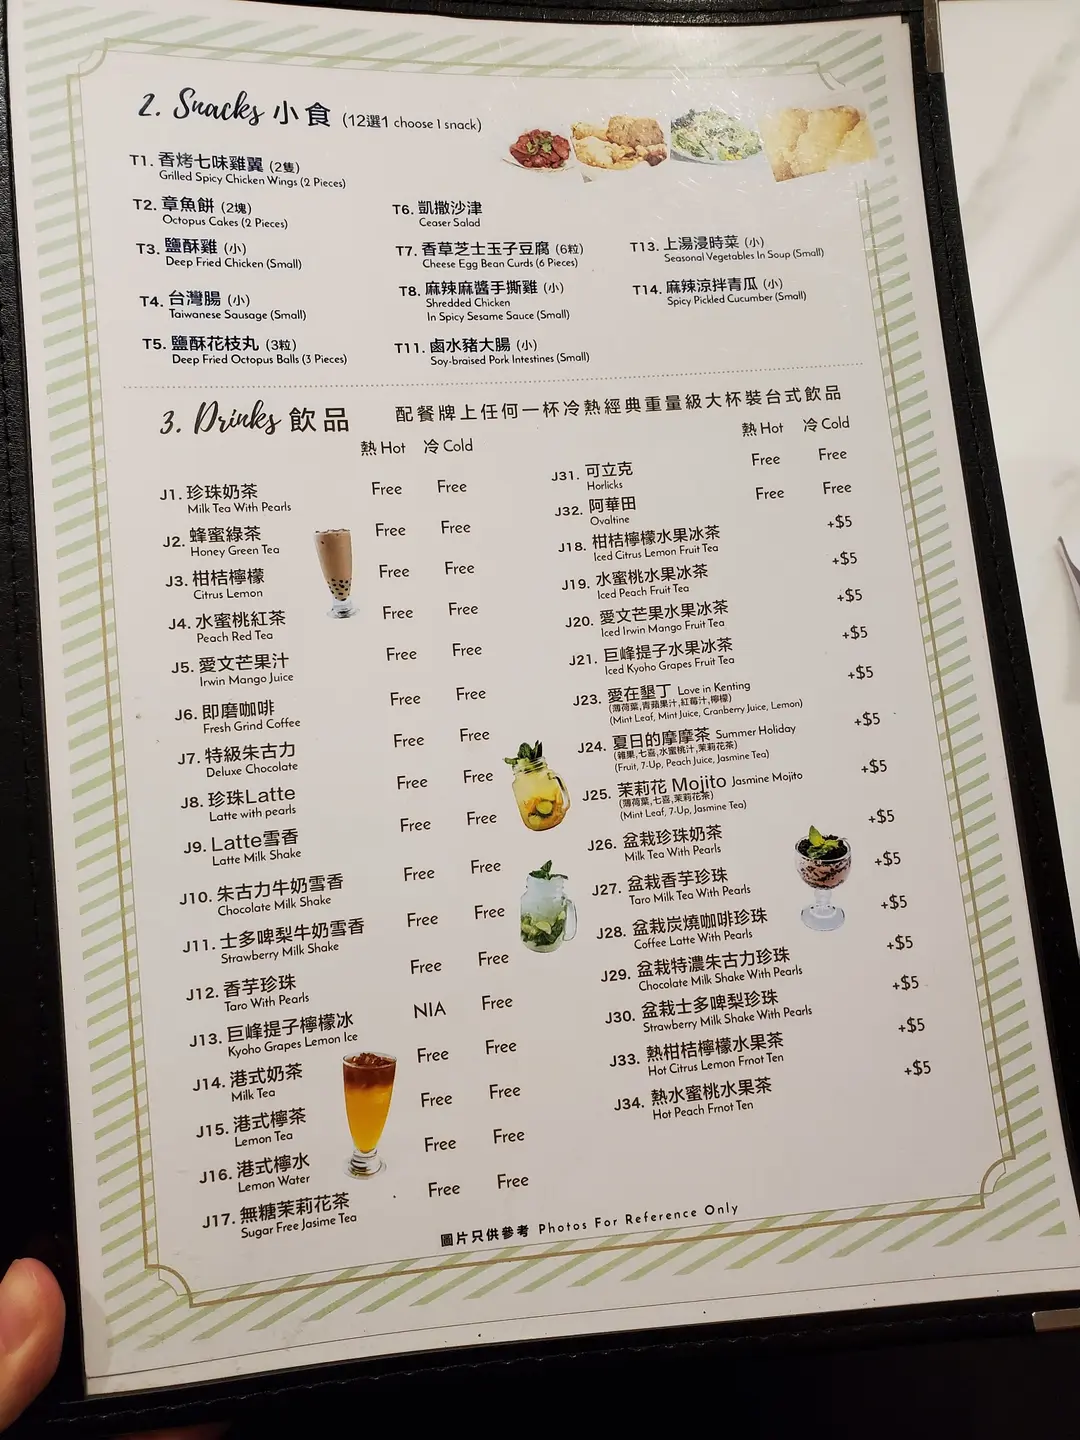 2. Snacks 小食 (12選1 choose 1 snack)
T1. 香烤七味雞翼 (2隻)
Grilled Spicy Chicken Wings (2 Pieces)
T2. 章魚餅 (2塊)
Octopus Cakes (2 Pieces)
T3. 鹽酥雞 (小)
Deep Fried Chicken (Small)
T4. 台灣腸 (小)
Taiwanese Sausage (Small)
T5. 鹽酥花枝丸 (3粒)
Deep Fried Octopus Balls (3 Pieces)
T6. 凱撒沙津
Ceaser Salad
T7. 香草芝士玉子豆腐 (6粒)
Cheese Egg Bean Curds (6 Pieces)
T8. 麻辣麻醬手撕雞 (小)
Shredded Chicken
In Spicy Sesame Sauce (Small)
T11. 鹵水豬大腸 (小)
Soy-braised Pork Intestines (Small)
T13. 上湯浸時菜 (小)
Seasonal Vegetables In Soup (Small)
T14. 麻辣涼拌青瓜 (小)
Spicy Pickled Cucumber (Small)
3. Drinks 飲品
配餐牌上任何一杯冷熱經典重量級大杯裝台式飲品
熱 Hot 冷 Cold
J1. 珍珠奶茶 Free Free
Milk Tea With Pearls
J2. 蜂蜜綠茶 Free Free
Honey Green Tea
J3. 柑桔檸檬 Free Free
Citrus Lemon
J4. 水蜜桃紅茶 Free Free
Peach Red Tea
J5. 愛文芒果汁 Free Free
Irwin Mango Juice
J6. 即磨咖啡 Free Free
Fresh Grind Coffee
J7. 特級朱古力 Free Free
Deluxe Chocolate
J8. 珍珠Latte Free Free
Latte with pearls
J9. Latte雪香 Free Free
Latte Milk Shake
J10. 朱古力牛奶雪香 Free Free
Chocolate Milk Shake
J11. 士多啤梨牛奶雪香 Free Free
Strawberry Milk Shake
J12. 香芋珍珠 Free Free
Taro With Pearls
J13. 巨峰提子檸檬冰 NIA Free
Kyoho Grapes Lemon Ice
J14. 港式奶茶 Free Free
Milk Tea
J15. 港式檸茶 Free Free
Lemon Tea
J16. 港式檸水 Free Free
Lemon Water
J17. 無糖茉莉花茶 Free Free
Sugar Free Jasime Tea
熱 Hot 冷 Cold
J31. 可立克 Free Free
Horlicks
J32. 阿華田 Free Free
Ovaltine
J18. 柑桔檸檬水果冰茶 +$5
Iced Citrus Lemon Fruit Tea
J19. 水蜜桃水果冰茶 +$5
Iced Peach Fruit Tea
J20. 愛文芒果水果冰茶 +$5
Iced Irwin Mango Fruit Tea
J21. 巨峰提子水果冰茶 +$5
Iced Kyoho Grapes Fruit Tea
J23. 愛在墾丁 Love in Kenting +$5
(薄荷葉,青蘋果汁,紅莓汁,檸檬)
(Mint Leaf, Mint Juice, Cranberry Juice, Lemon)
J24. 夏日的摩摩茶 Summer Holiday +$5
(雜果,七喜,水蜜桃汁,茉莉花茶)
(Fruit, 7-Up, Peach Juice, Jasmine Tea)
J25. 茉莉花 Mojito Jasmine Mojito +$5
(薄荷葉,七喜,茉莉花茶)
(Mint Leaf, 7-Up, Jasmine Tea)
J26. 盆栽珍珠奶茶 +$5
Milk Tea With Pearls
J27. 盆栽香芋珍珠 +$5
Taro Milk Tea With Pearls
J28. 盆栽炭燒咖啡珍珠 +$5
Coffee Latte With Pearls
J29. 盆栽特濃朱古力珍珠 +$5
Chocolate Milk Shake With Pearls
J30. 盆栽士多啤梨珍珠 +$5
Strawberry Milk Shake With Pearls
J33. 熱柑桔檸檬水果茶 +$5
Hot Citrus Lemon Frnot Ten
J34. 熱水蜜桃水果茶 +$5
Hot Peach Frnot Ten
圖片只供參考 Photos For Reference Only